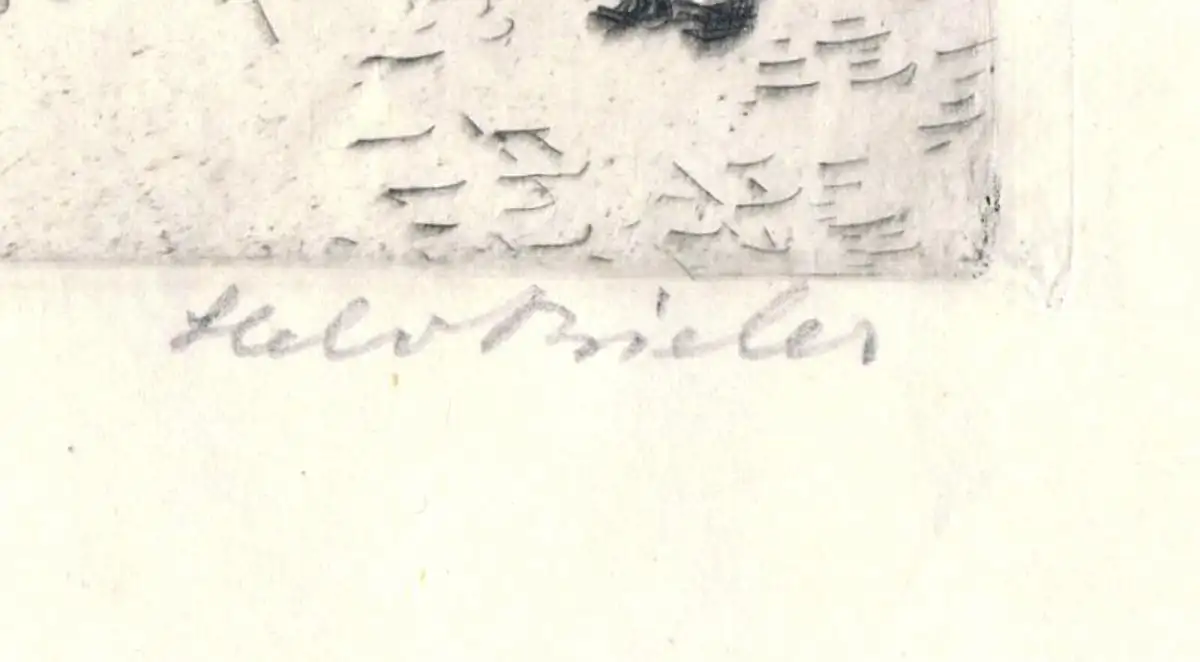 Helv Brieler